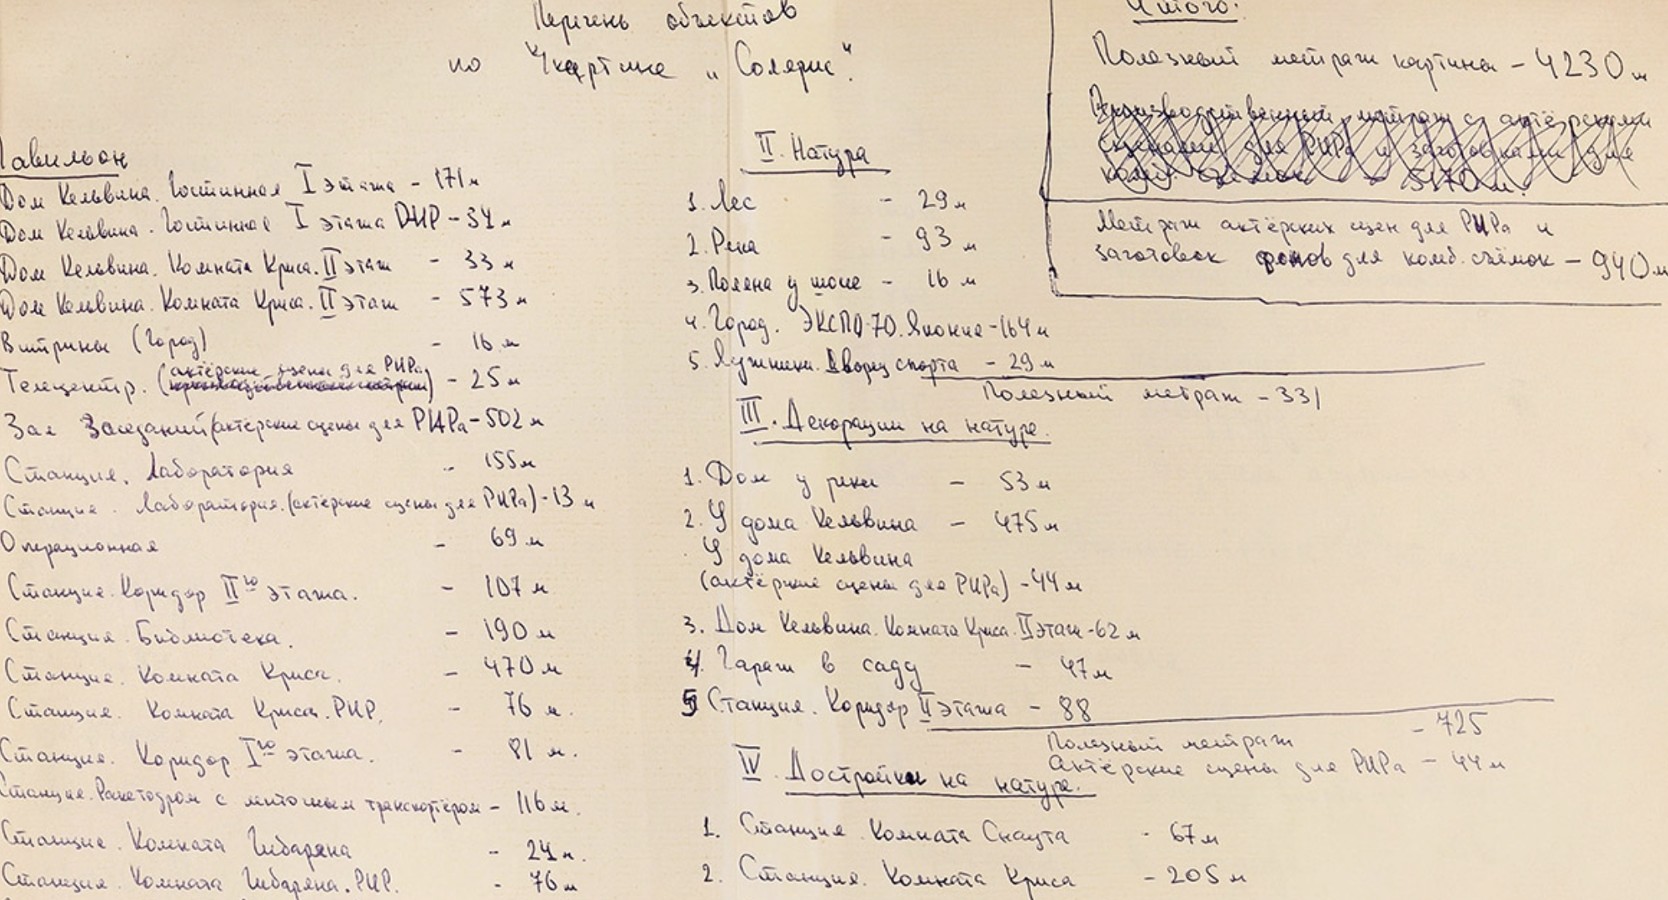 Перечень объектов
по "картине „Солярис".
Павильон
Дом Кельвина. Гостинная I этажа - 171м
Дом Кельвина. Гостинная I этажа РИР - 34 м
Дом Кельвина. Комната Криса. II этаж - 33 м
Дом Кельвина. Комната Криса. II этаж - 573 м
Витрины (Город) - 16 м
Телецентр. (актёрские сцены для РИРа) - 25 м
Зал Заседаний (актёрские сцены для РИРа - 502 м
Станция. Лаборатория - 155м
Станция. Лаборатория. (актёрские сцены для РИРа) - 13 м
Операционная - 69 м
Станция. Коридор IIго этажа. - 107 м
Станция. Библиотека. - 190 м
Станция. Комната Криса. - 470 м
Станция. Комната Криса. РИР. - 76 м.
Станция. Коридор Iго этажа. - 81 м.
Станция. Ракетодром с ленточным транспортёром - 116 м.
Станция. Комната Гибаряна - 24 м.
Станция. Комната Гибаряна. РИР. - 76 м
II. Натура
1. Лес - 29 м
2. Река - 93 м
3. Поляна у шоссе - 16 м
4. Город. ЭКСПО-70. Япония - 164 м
5. Лужники. Дворец спорта - 29 м
Полезный метраж - 331
III. Декорации на натуре.
1. Дом у реки - 53 м
2. У дома Кельвина - 475 м
У дома Кельвина
(актёрские сцены для РИРа) - 44 м
3. Дом Кельвина. Комната Криса. II этаж - 62 м
4. Гараж в саду - 47 м
5 Станция. Коридор II этажа - 88
Полезный метраж - 725
Актёрские сцены для РИРа - 44 м
IV. Достройки на натуре.
1. Станция. Комната Снаута - 67 м
2. Станция. Комната Криса - 205 м
Итого:
Полезный метраж картины - 4230 м
Производственный метраж с актёрскими
сценами для РИРа и заготовками для
комб. съёмок - 5170 м.
Метраж актёрских сцен для РИРа и
заготовок фонов для комб. съёмок - 940 м